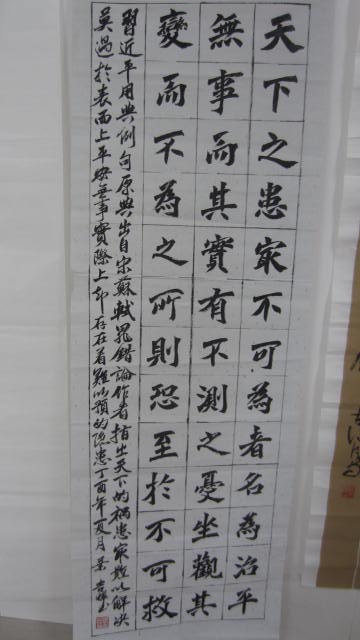 天下之患冣不可為者名為治平
無事而其實有不測之憂坐觀其
變而不為之所則恐至於不可救
習近平用典例句原典出自宋蘇軾晁錯論作者指出天下的禍患冣難以解決
莫過於表面上平安無事實際上却存在着難以預的隐患丁酉年夏月